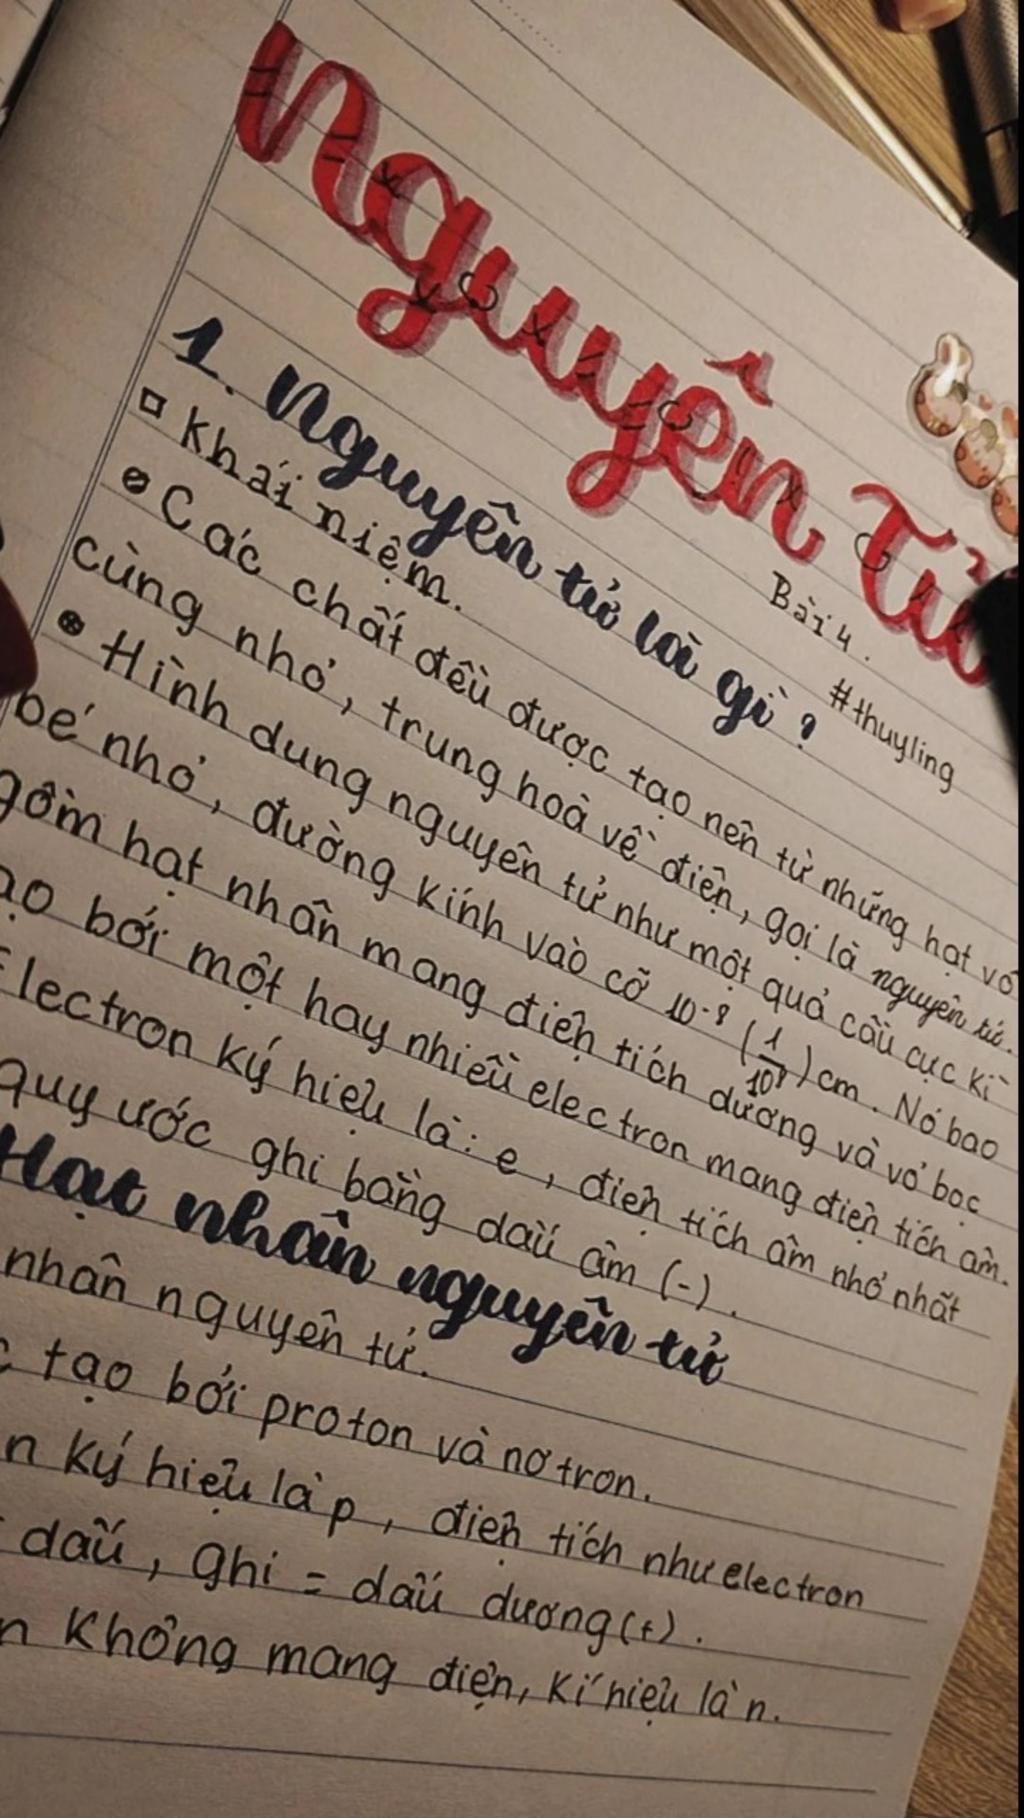 Nguyên Tử
Bài 4.
#thuyling
1. Nguyên tử là gì?
Khái niệm.
Các chất đều được tạo nên từ những hạt vô
cùng nhỏ, trung hoà về điện, gọi là nguyên tử.
Hình dung nguyên tử như một quả cầu cực kì
bé nhỏ, đường kính vào cỡ 10⁻⁸ (1/10⁸) cm. Nó bao
gồm hạt nhân mang điện tích dương và vỏ bọc
ạo bởi một hay nhiều electron mang điện tích âm.
Electron ký hiệu là: e, điện tích âm nhỏ nhất
quy ước ghi bằng dấu âm (-).
Hạt nhân nguyên tử
nhân nguyên tử.
tạo bởi proton và nơtron.
n ký hiệu là p, điện tích như electron
dấu, ghi = dấu dương (+).
n không mang điện, kí hiệu là n.